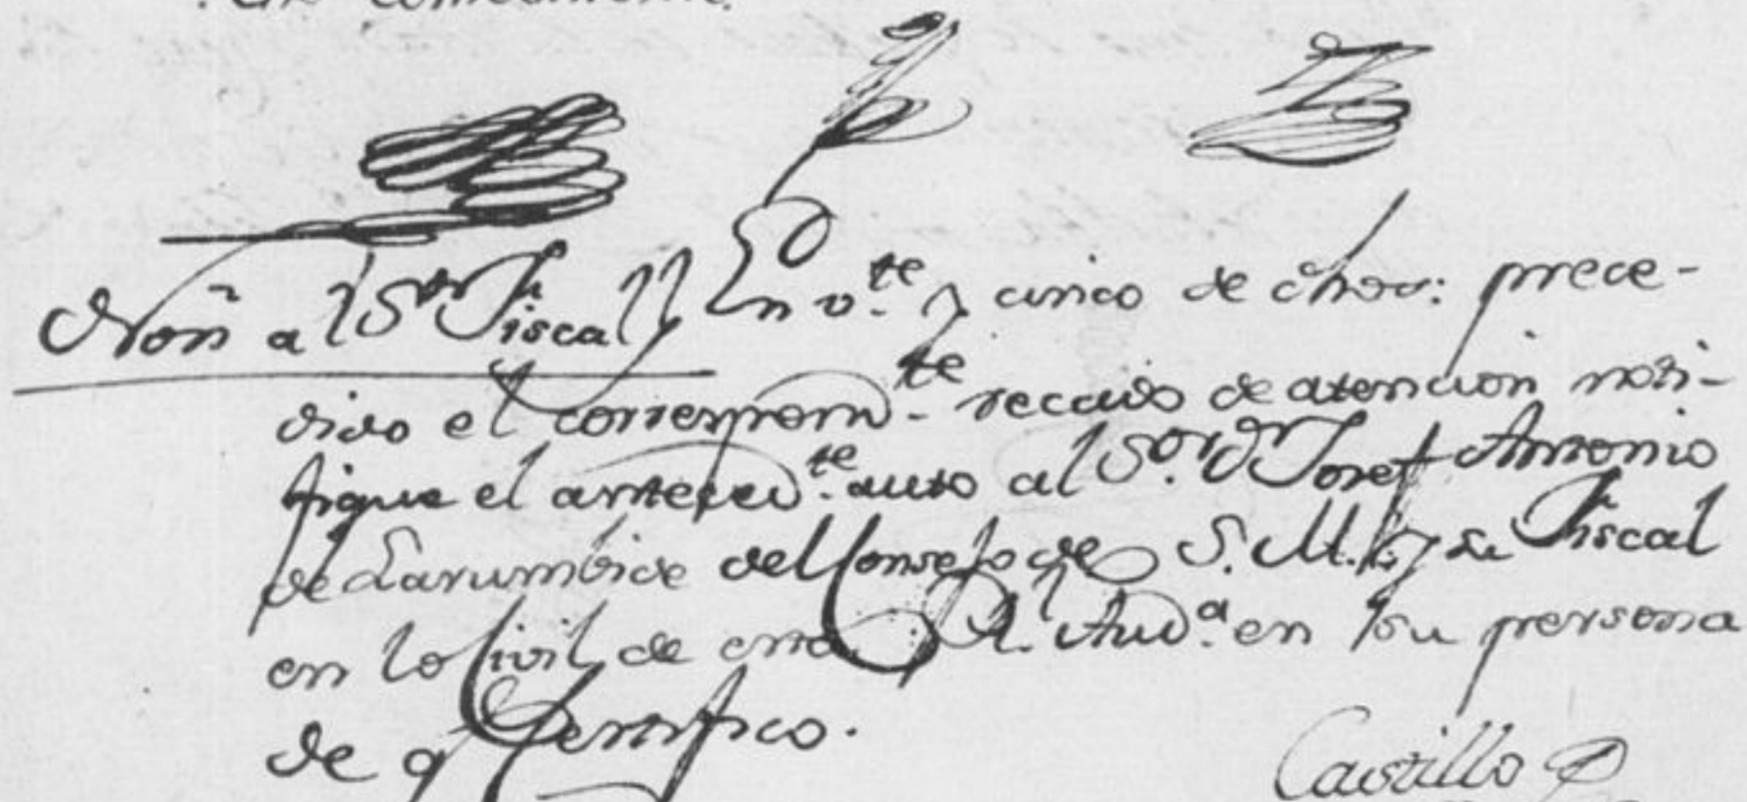 Noñ al S.or Fiscal En v.te y cinco de dho: prece-
dido el correspond.te recado de atencion noti-
fique el anteced.te auto al S.or D.r Josef Antonio
de Larumbide del Consejo de S. M. y su Fiscal
en lo Civil de esta R.l Aud.a en su persona
de q Certifico.
Castillo